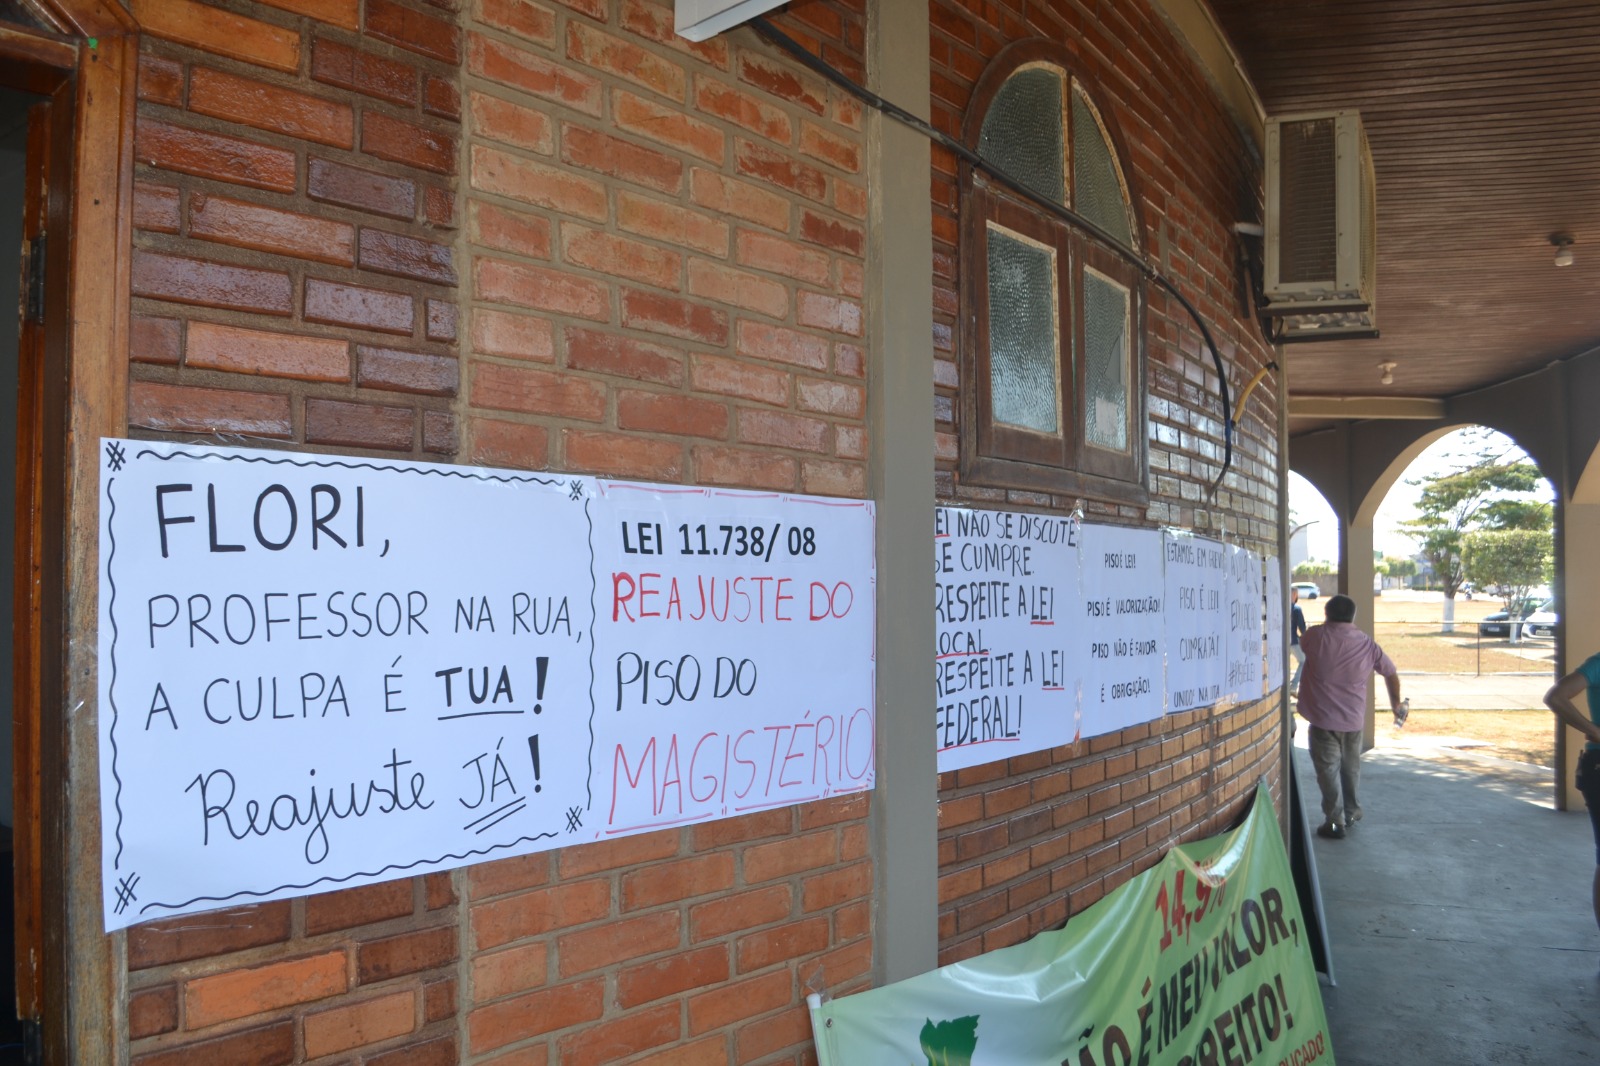 FLORI,
PROFESSOR NA RUA,
A CULPA É TUA!
Reajuste JÁ!
LEI 11.738/08
REAJUSTE DO
PISO DO
MAGISTÉRIO
NÃO SE DISCUTE
SE CUMPRE.
RESPEITE A LEI
LOCAL.
RESPEITE A LEI
FEDERAL!
PISO É LEI!
PISO É VALORIZAÇÃO!
PISO NÃO É FAVOR
É OBRIGAÇÃO!
ESTAMOS EM GREVE
PISO É LEI!
CUMPRA JÁ!
14,9%
É MEU VALOR,